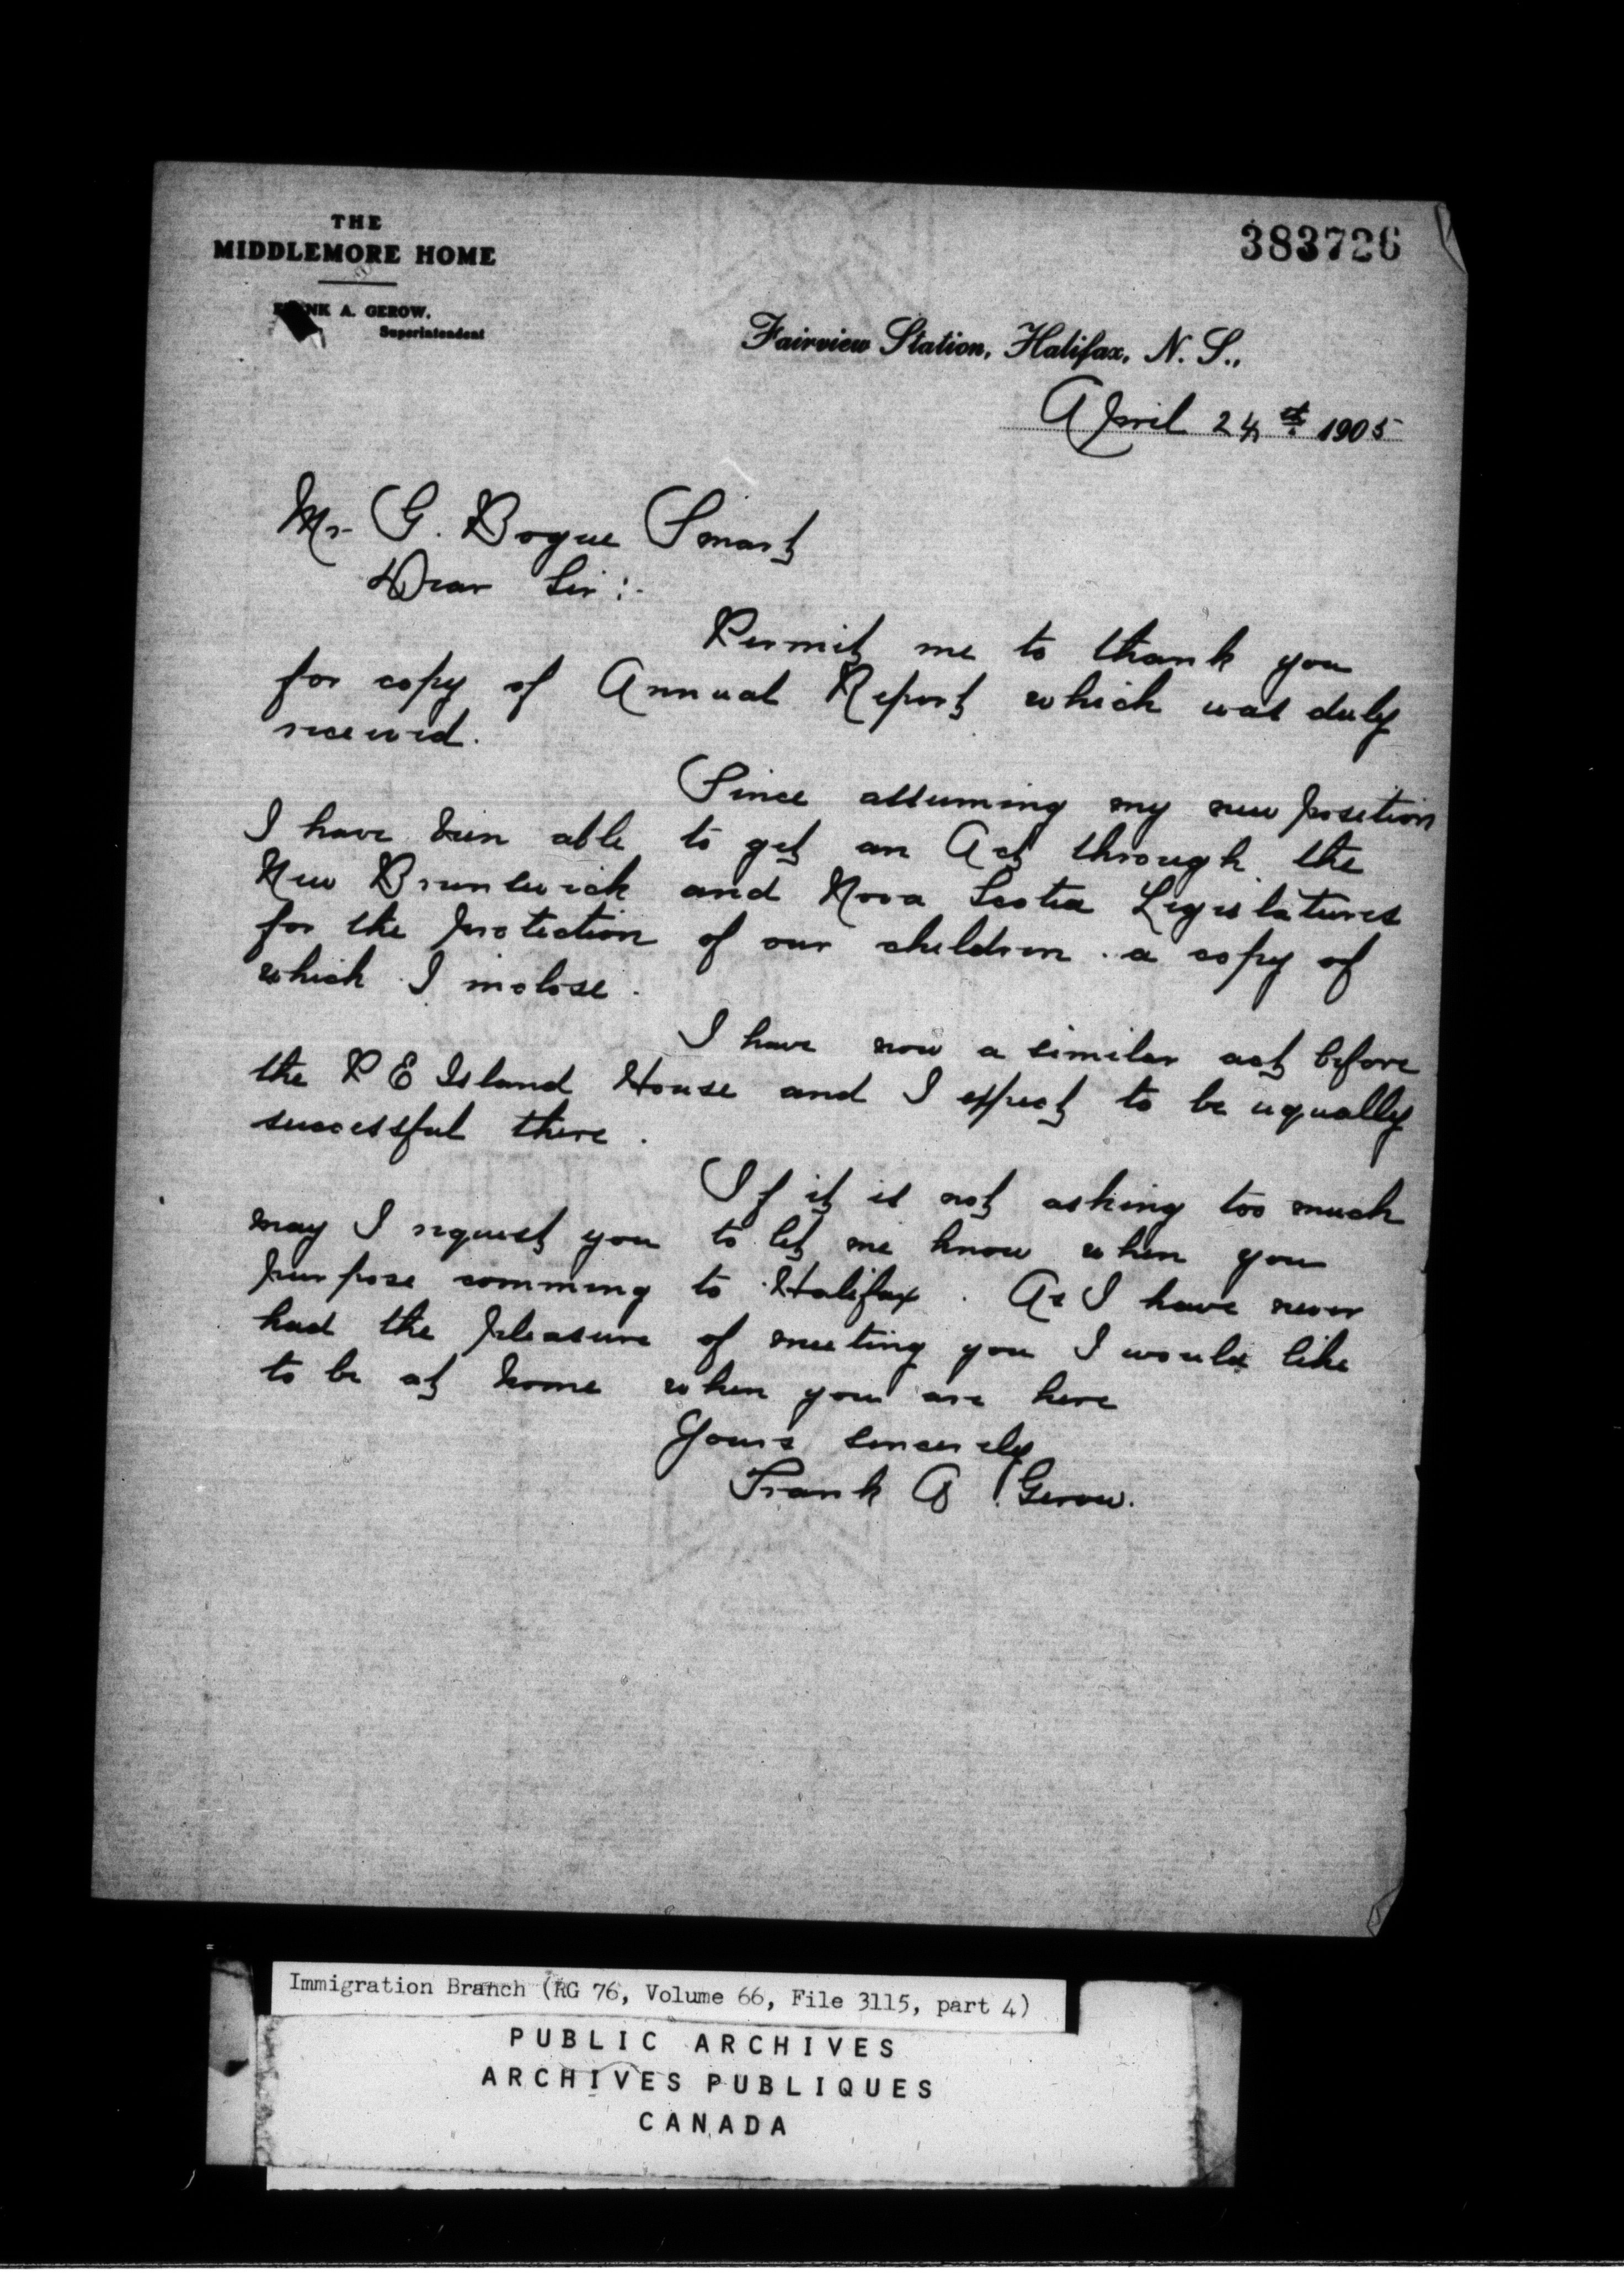 THE
MIDDLEMORE HOME
383726
FRANK A. GEROW.
Superintendent
Fairview Station, Halifax, N. S.,
April 24th 1905
Mr. G. Bogue Smart
Dear Sir:-
Permit me to thank you
for copy of Annual Report which was duly
received.
Since assuming my new position
I have been able to get an Act through the
New Brunswick and Nova Scotia Legislatures
for the protection of our children. a copy of
which I inclose.
I have now a similar act before
the P E Island House and I expect to be equally
successful there.
If it is not asking too much
may I request you to let me know when you
purpose comming to Halifax. As I have never
had the pleasure of meeting you I would like
to be at home when you are here
Yours sincerely
Frank A Gerow.
Immigration Branch (RG 76, Volume 66, File 3115, part 4)
PUBLIC ARCHIVES
ARCHIVES PUBLIQUES
CANADA